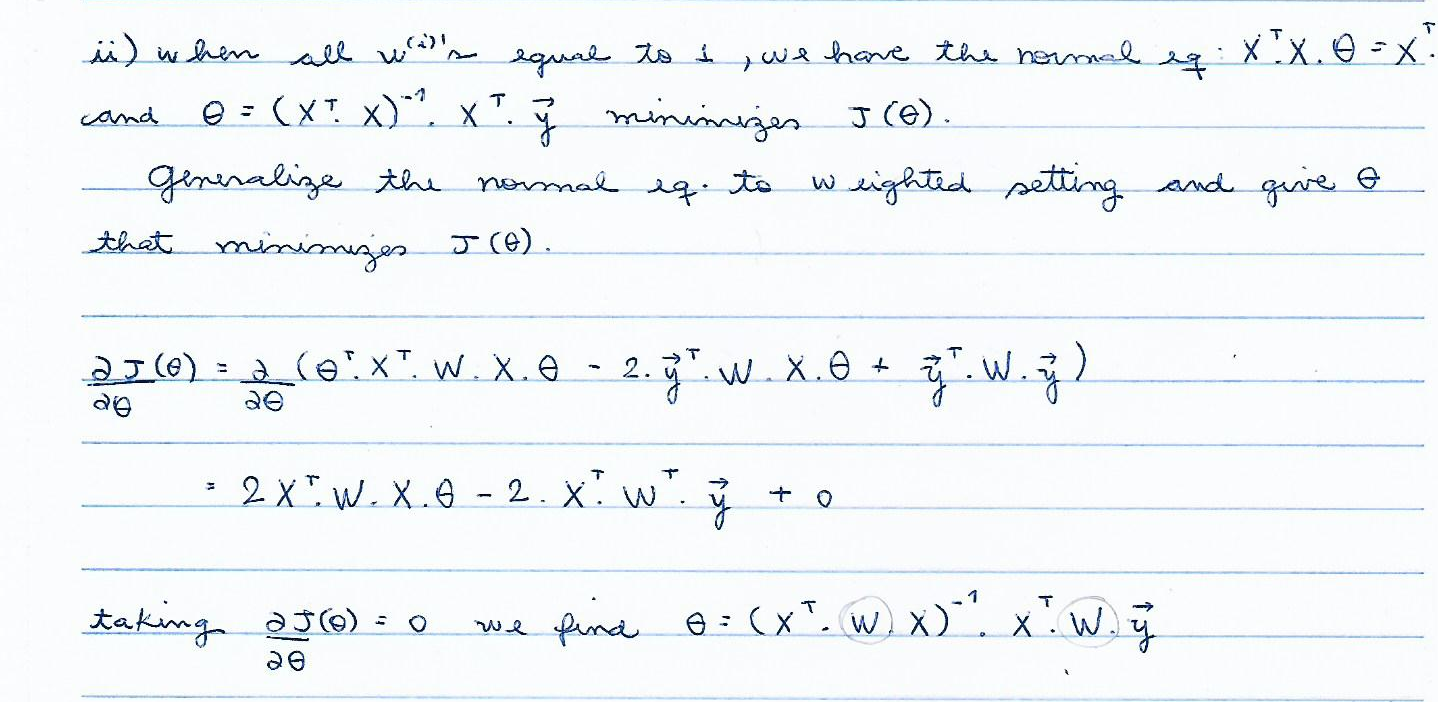 ii) when all w⁽ⁱ⁾'s equal to 1, we have the normal eq: Xᵀ.X.θ = Xᵀ.
and θ = (Xᵀ.X)⁻¹.Xᵀ.y⃗ minimizes J(θ).
Generalize the normal eq. to weighted setting and give θ
that minimizes J(θ).
∂J(θ)/∂θ = ∂/∂θ (θᵀ.Xᵀ.W.X.θ - 2.y⃗ᵀ.W.X.θ + y⃗ᵀ.W.y⃗)
= 2Xᵀ.W.X.θ - 2.Xᵀ.Wᵀ.y⃗ + 0
taking ∂J(θ)/∂θ = 0 we find θ = (Xᵀ.W.X)⁻¹.Xᵀ.W.y⃗